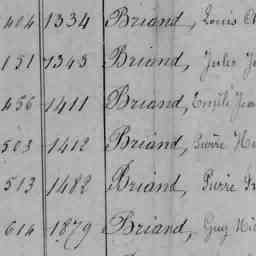 404 1334 Briand, Louis
151 1343 Briand, Jules
456 1411 Briand, Emile
503 1412 Briand, Pierre
513 1482 Briand, Pierre
614 1879 Briand, Guy